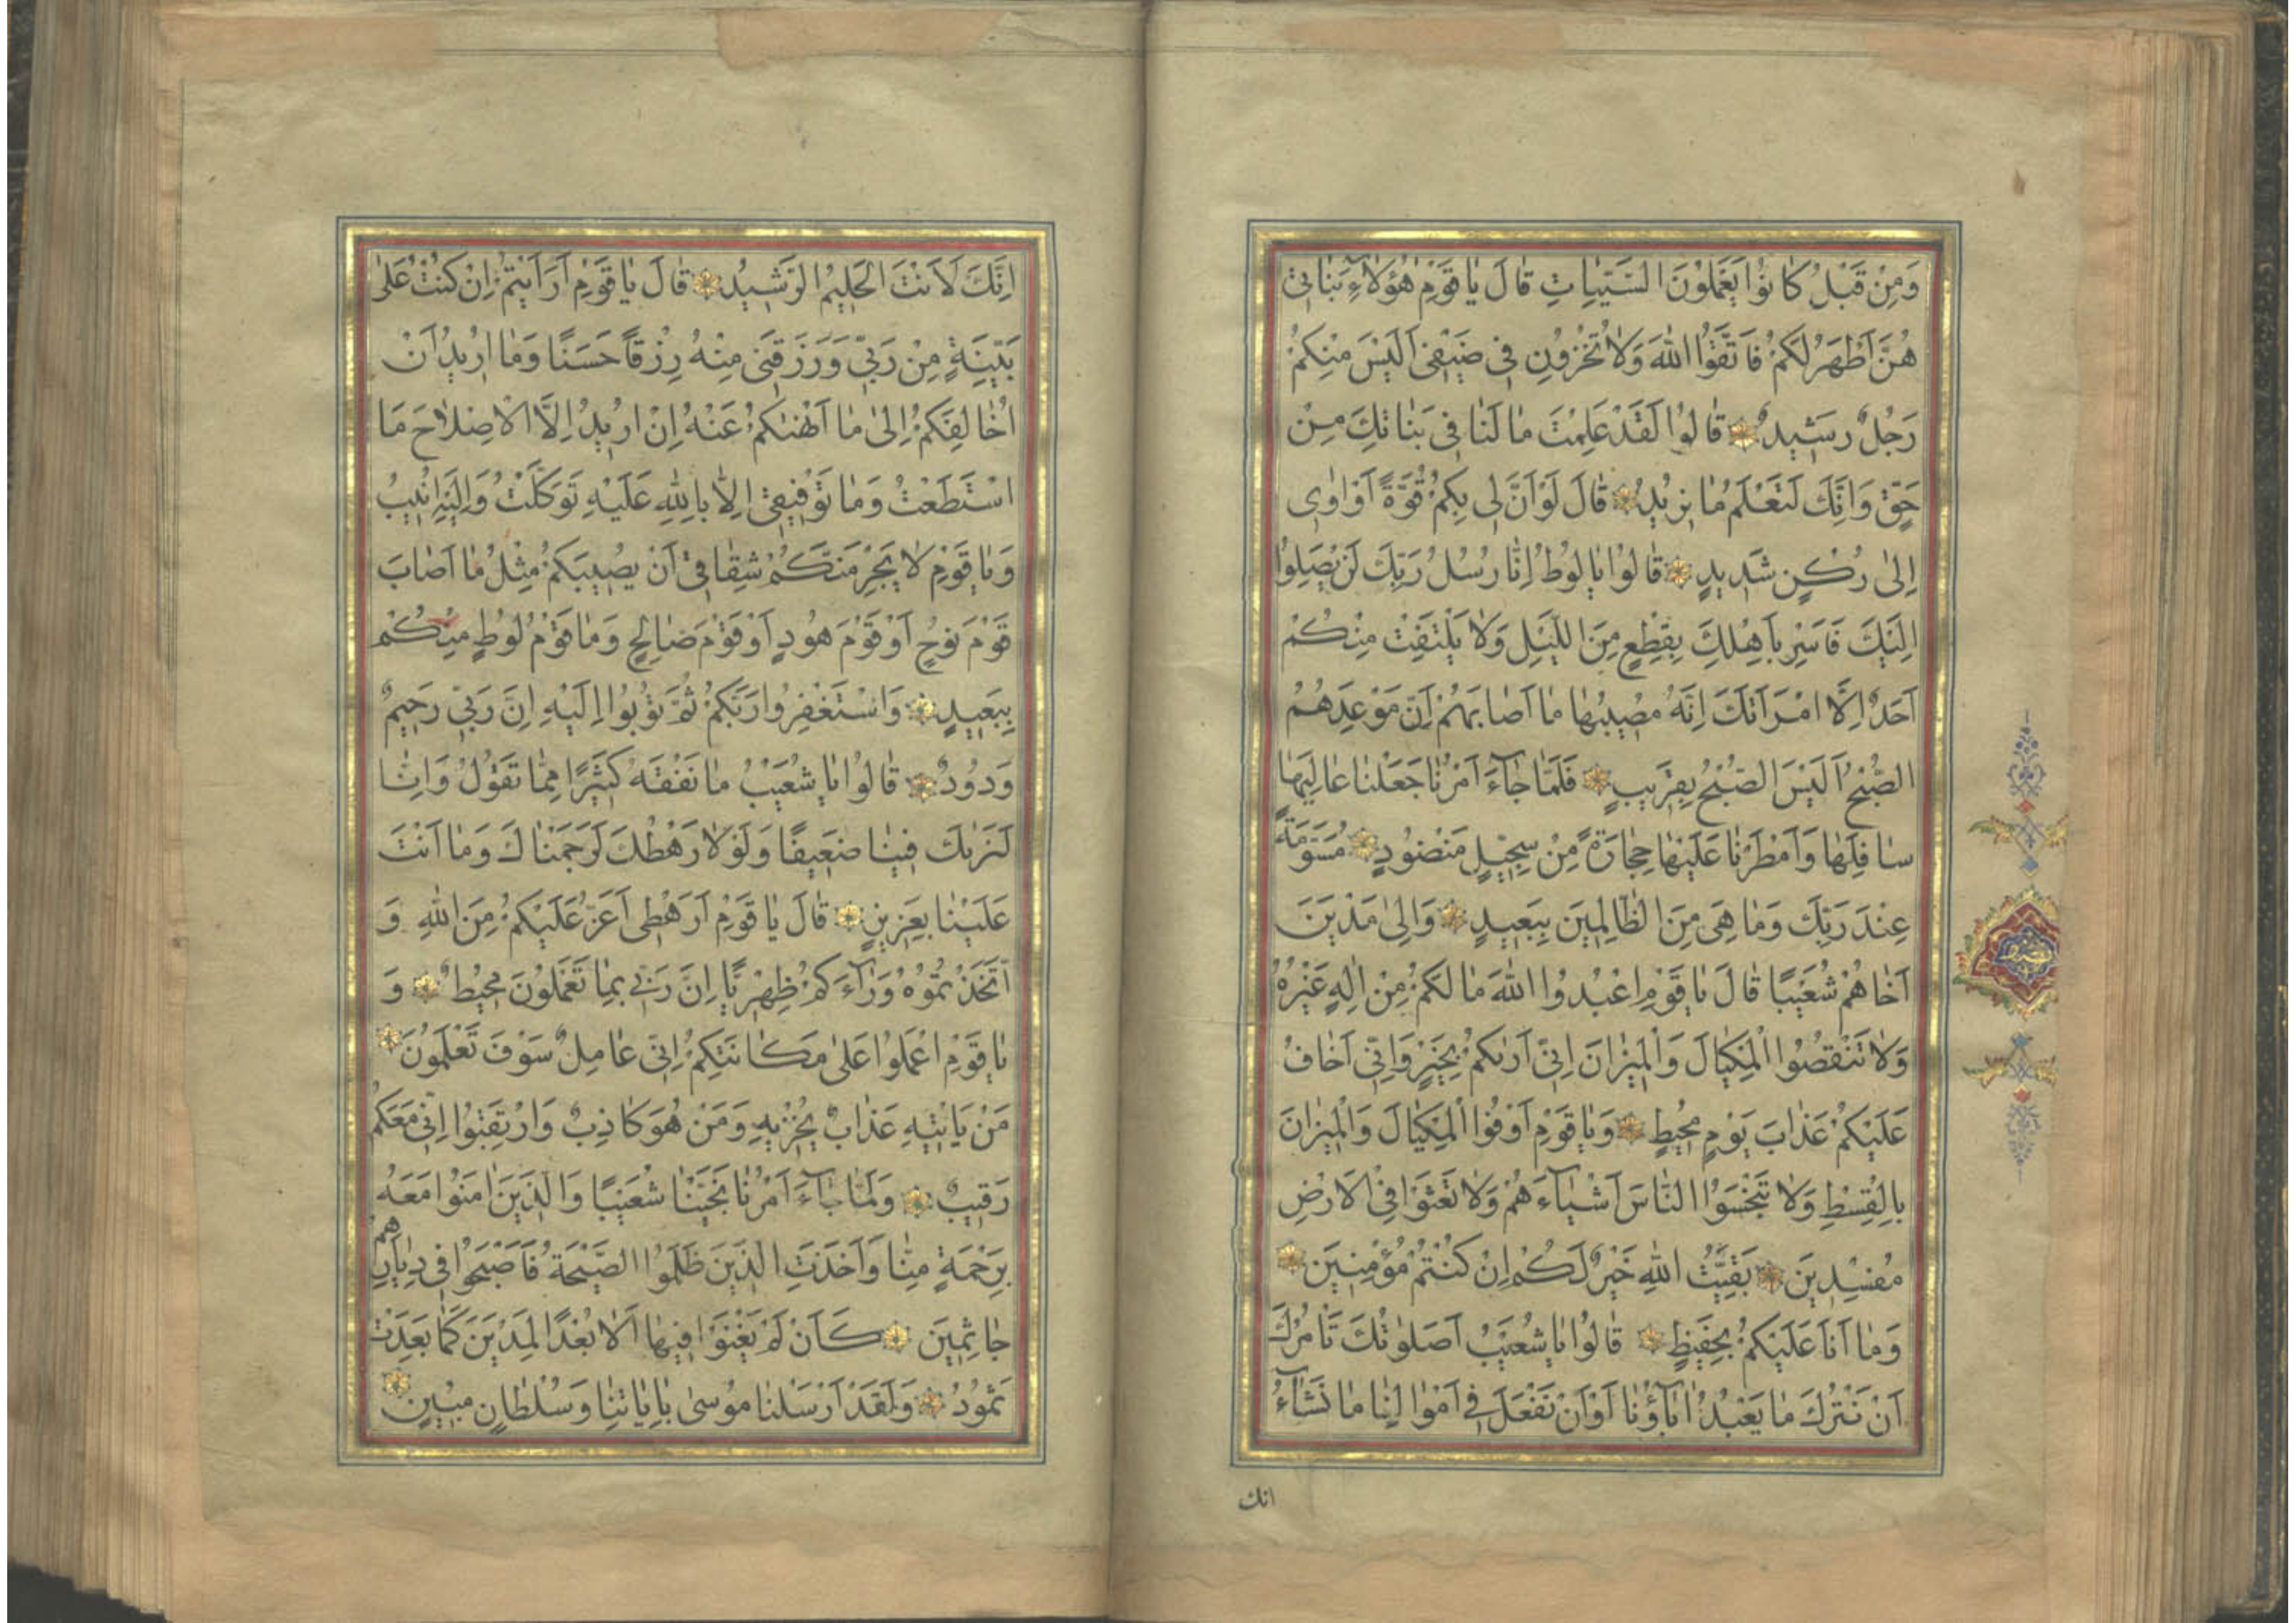 وَمِنْ قَبْلُ كَانُوا يَعْمَلُونَ السَّيِّئَاتِ قَالَ يَا قَوْمِ هٰؤُلَاءِ بَنَاتِي
هُنَّ أَطْهَرُ لَكُمْ فَاتَّقُوا اللّٰهَ وَلَا تُخْزُونِ فِي ضَيْفِي أَلَيْسَ مِنْكُمْ
رَجُلٌ رَشِيدٌ قَالُوا لَقَدْ عَلِمْتَ مَا لَنَا فِي بَنَاتِكَ مِنْ
حَقٍّ وَإِنَّكَ لَتَعْلَمُ مَا نُرِيدُ قَالَ لَوْ أَنَّ لِي بِكُمْ قُوَّةً أَوْ آوِي
إِلَىٰ رُكْنٍ شَدِيدٍ قَالُوا يَا لُوطُ إِنَّا رُسُلُ رَبِّكَ لَنْ يَصِلُوا
إِلَيْكَ فَأَسْرِ بِأَهْلِكَ بِقِطْعٍ مِنَ اللَّيْلِ وَلَا يَلْتَفِتْ مِنْكُمْ
أَحَدٌ إِلَّا امْرَأَتَكَ إِنَّهُ مُصِيبُهَا مَا أَصَابَهُمْ إِنَّ مَوْعِدَهُمُ
الصُّبْحُ أَلَيْسَ الصُّبْحُ بِقَرِيبٍ فَلَمَّا جَاءَ أَمْرُنَا جَعَلْنَا عَالِيَهَا
سَافِلَهَا وَأَمْطَرْنَا عَلَيْهَا حِجَارَةً مِنْ سِجِّيلٍ مَنْضُودٍ مُسَوَّمَةً
عِنْدَ رَبِّكَ وَمَا هِيَ مِنَ الظَّالِمِينَ بِبَعِيدٍ وَإِلَىٰ مَدْيَنَ
أَخَاهُمْ شُعَيْبًا قَالَ يَا قَوْمِ اعْبُدُوا اللّٰهَ مَا لَكُمْ مِنْ إِلٰهٍ غَيْرُهُ
وَلَا تَنْقُصُوا الْمِكْيَالَ وَالْمِيزَانَ إِنِّي أَرٰىكُمْ بِخَيْرٍ وَإِنِّي أَخَافُ
عَلَيْكُمْ عَذَابَ يَوْمٍ مُحِيطٍ وَيَا قَوْمِ أَوْفُوا الْمِكْيَالَ وَالْمِيزَانَ
بِالْقِسْطِ وَلَا تَبْخَسُوا النَّاسَ أَشْيَاءَهُمْ وَلَا تَعْثَوْا فِي الْأَرْضِ
مُفْسِدِينَ بَقِيَّتُ اللّٰهِ خَيْرٌ لَكُمْ إِنْ كُنْتُمْ مُؤْمِنِينَ
وَمَا أَنَا عَلَيْكُمْ بِحَفِيظٍ قَالُوا يَا شُعَيْبُ أَصَلَوٰتُكَ تَأْمُرُكَ
أَنْ نَتْرُكَ مَا يَعْبُدُ آبَاؤُنَا أَوْ أَنْ نَفْعَلَ فِي أَمْوَالِنَا مَا نَشَاءُ
انك
إِنَّكَ لَأَنْتَ الْحَلِيمُ الرَّشِيدُ قَالَ يَا قَوْمِ أَرَأَيْتُمْ إِنْ كُنْتُ عَلَىٰ
بَيِّنَةٍ مِنْ رَبِّي وَرَزَقَنِي مِنْهُ رِزْقًا حَسَنًا وَمَا أُرِيدُ أَنْ
أُخَالِفَكُمْ إِلَىٰ مَا أَنْهٰىكُمْ عَنْهُ إِنْ أُرِيدُ إِلَّا الْإِصْلَاحَ مَا
اسْتَطَعْتُ وَمَا تَوْفِيقِي إِلَّا بِاللّٰهِ عَلَيْهِ تَوَكَّلْتُ وَإِلَيْهِ أُنِيبُ
وَيَا قَوْمِ لَا يَجْرِمَنَّكُمْ شِقَاقِي أَنْ يُصِيبَكُمْ مِثْلُ مَا أَصَابَ
قَوْمَ نُوحٍ أَوْ قَوْمَ هُودٍ أَوْ قَوْمَ صَالِحٍ وَمَا قَوْمُ لُوطٍ مِنْكُمْ
بِبَعِيدٍ وَاسْتَغْفِرُوا رَبَّكُمْ ثُمَّ تُوبُوا إِلَيْهِ إِنَّ رَبِّي رَحِيمٌ
وَدُودٌ قَالُوا يَا شُعَيْبُ مَا نَفْقَهُ كَثِيرًا مِمَّا تَقُولُ وَإِنَّا
لَنَرٰىكَ فِينَا ضَعِيفًا وَلَوْلَا رَهْطُكَ لَرَجَمْنَاكَ وَمَا أَنْتَ
عَلَيْنَا بِعَزِيزٍ قَالَ يَا قَوْمِ أَرَهْطِي أَعَزُّ عَلَيْكُمْ مِنَ اللّٰهِ وَ
اتَّخَذْتُمُوهُ وَرَاءَكُمْ ظِهْرِيًّا إِنَّ رَبِّي بِمَا تَعْمَلُونَ مُحِيطٌ وَ
يَا قَوْمِ اعْمَلُوا عَلَىٰ مَكَانَتِكُمْ إِنِّي عَامِلٌ سَوْفَ تَعْلَمُونَ
مَنْ يَأْتِيهِ عَذَابٌ يُخْزِيهِ وَمَنْ هُوَ كَاذِبٌ وَارْتَقِبُوا إِنِّي مَعَكُمْ
رَقِيبٌ وَلَمَّا جَاءَ أَمْرُنَا نَجَّيْنَا شُعَيْبًا وَالَّذِينَ آمَنُوا مَعَهُ
بِرَحْمَةٍ مِنَّا وَأَخَذَتِ الَّذِينَ ظَلَمُوا الصَّيْحَةُ فَأَصْبَحُوا فِي دِيَارِهِمْ
جَاثِمِينَ كَأَنْ لَمْ يَغْنَوْا فِيهَا أَلَا بُعْدًا لِمَدْيَنَ كَمَا بَعِدَتْ
ثَمُودُ وَلَقَدْ أَرْسَلْنَا مُوسَىٰ بِآيَاتِنَا وَسُلْطَانٍ مُبِينٍ